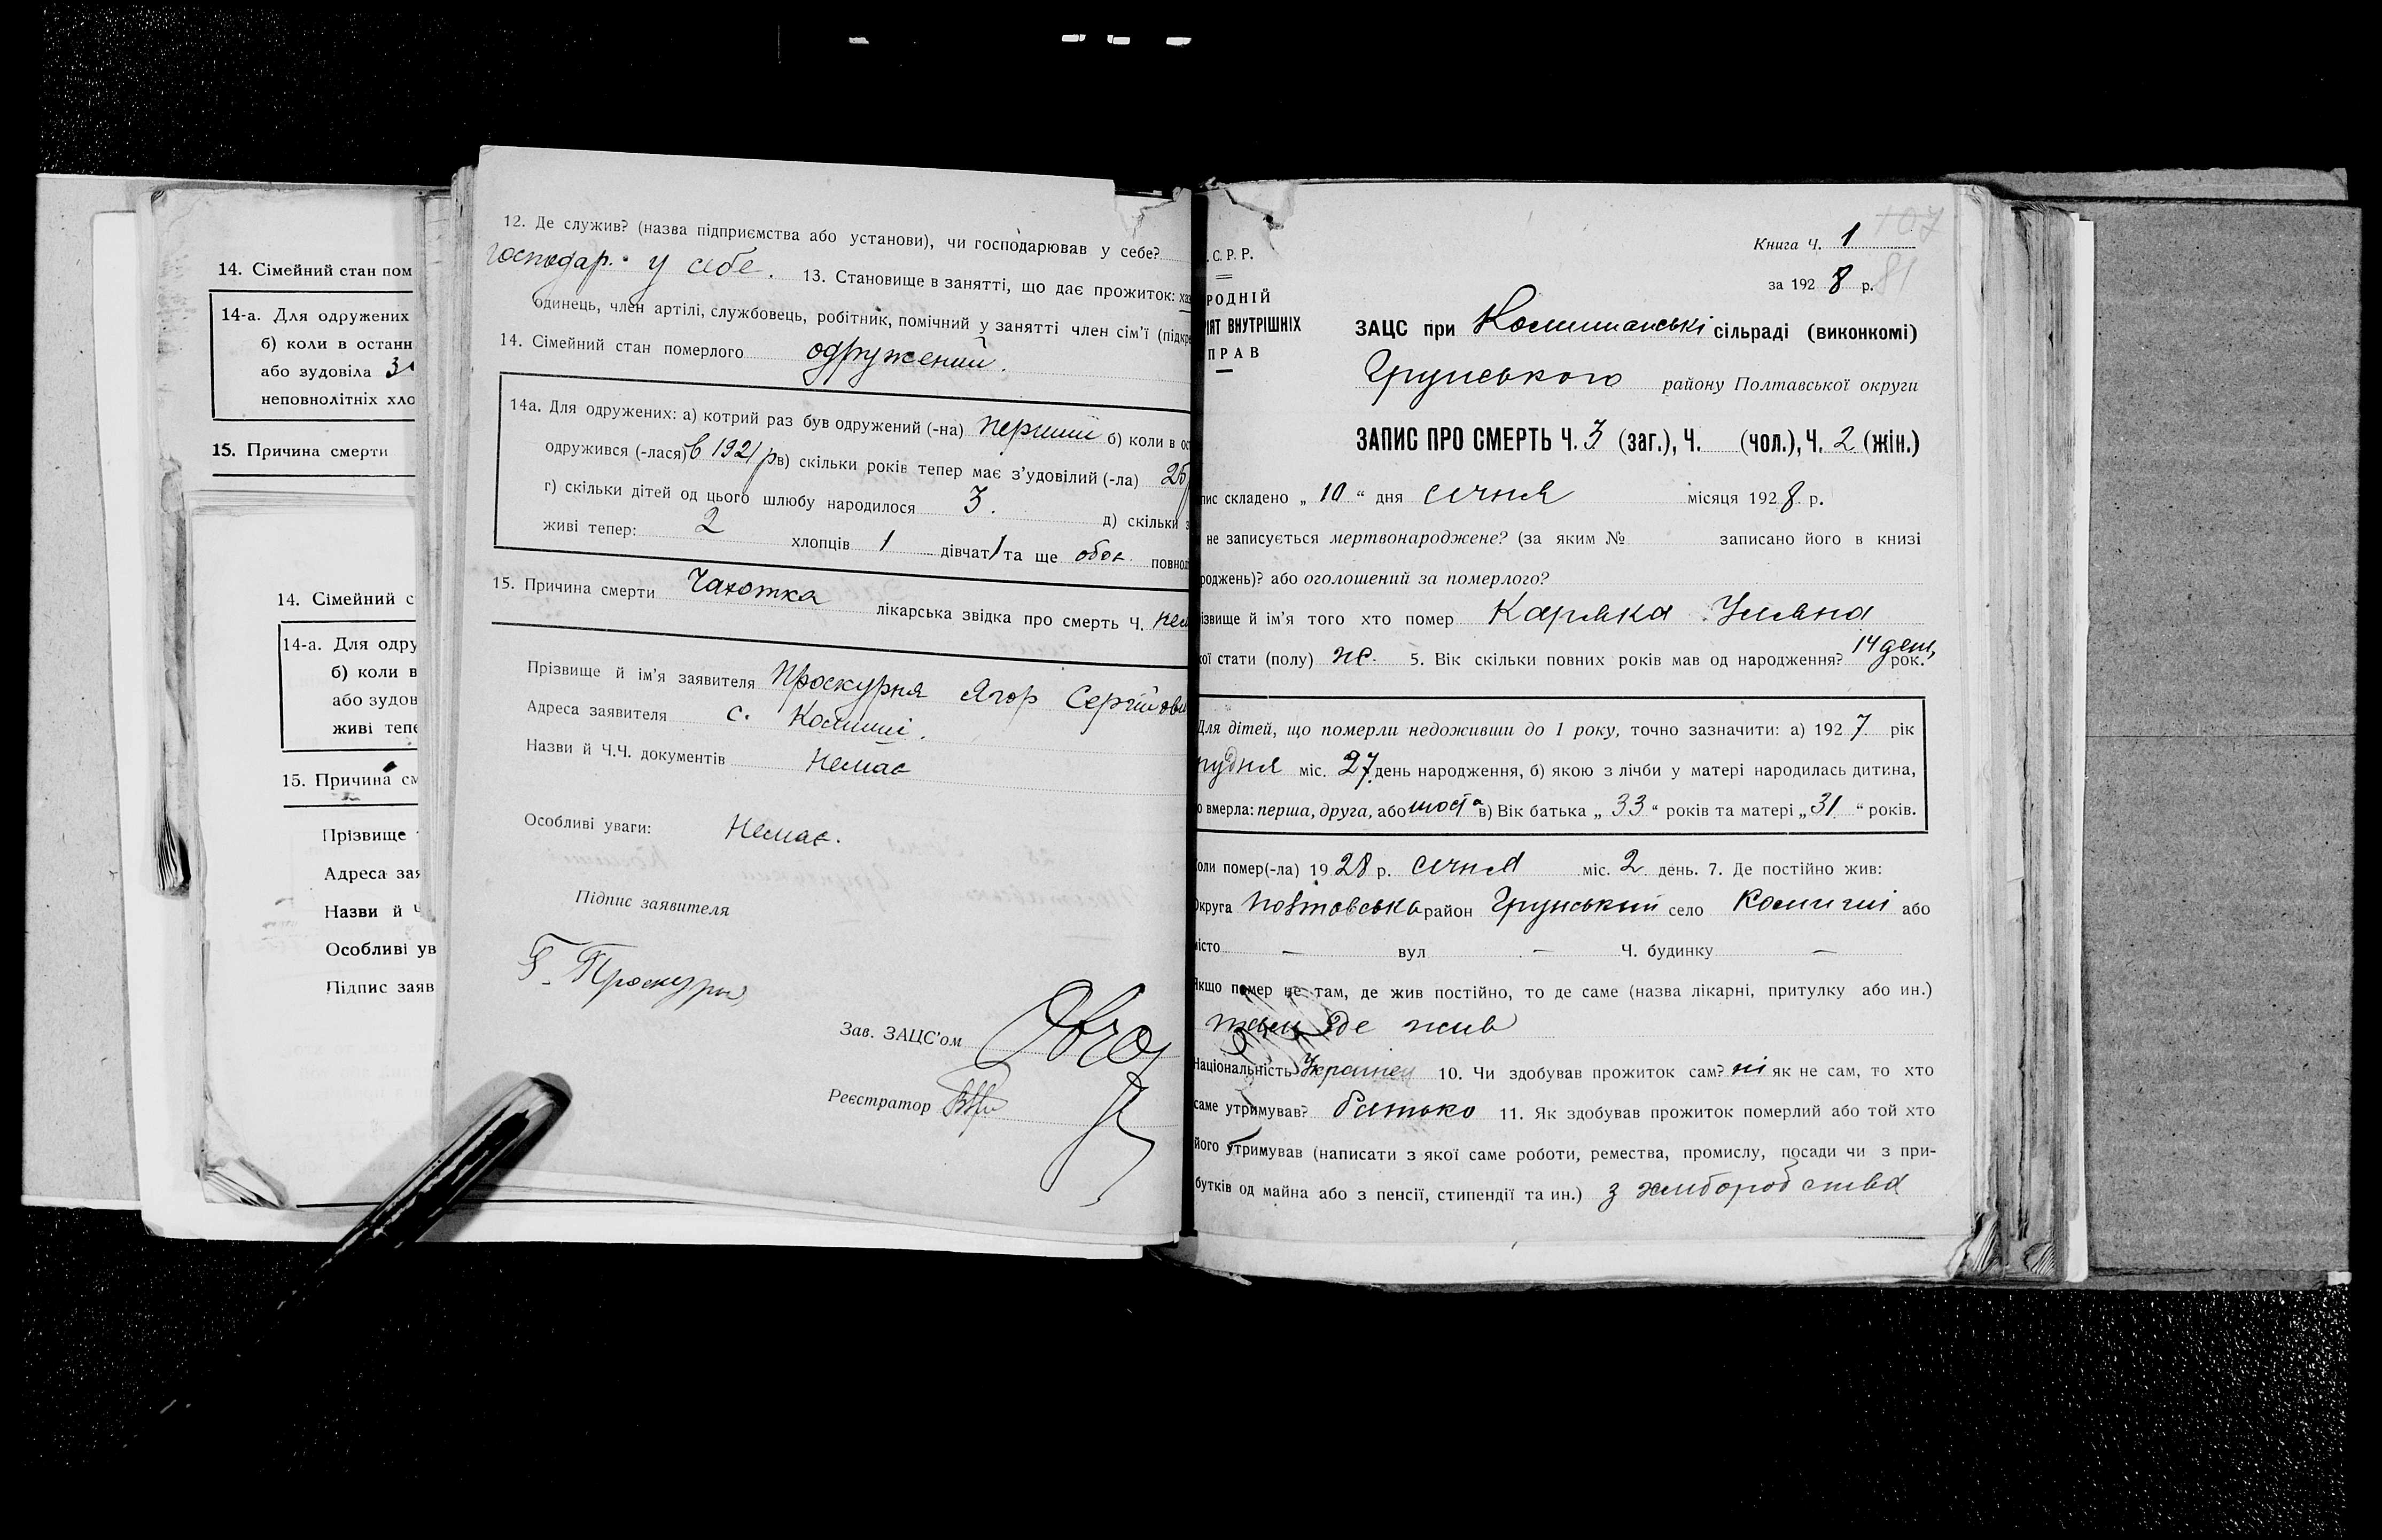 14. Сімейний стан пом
14-а. Для одружених
б) коли в останн
або зудовіла
неповнолітніх хло
15. Причина смерти
14. Сімейний с
14-а. Для одру
б) коли в
або зудов
живі тепе
15. Причина см
Прізвище
Адреса зая
Назви й Ч
Особливі ув
Підпис заяв
12. Де служив? (назва підприємства або установи), чи господарював у себе?
господар. у себе. 13. Становище в занятті, що дає прожиток: хаз
одинець, член артілі, службовець, робітник, помічний у занятті член сім'ї (підкре
14. Сімейний стан померлого одружений.
14а. Для одружених: а) котрий раз був одружений (-на) перший б) коли в ос
одружився (-лася) в 1921 р в) скільки років тепер має з'удовілий (-ла)
г) скільки дітей од цього шлюбу народилося 3. д) скільки з
живі тепер: 2 хлопців 1 дівчат 1 та ще обок повнол
15. Причина смерти Чахотка лікарська звідка про смерть Ч. нем
Прізвище й ім'я заявителя Проскурня Ягор Сергійови
Адреса заявителя с. Комиші.
Назви й Ч.Ч. документів Немає
Особливі уваги: Немає.
Підпис заявителя
Г. Проскурня
Зав. ЗАЦС'ом
Реєстратор
Книга Ч. 1
107
за 1928 р.
81
.С.Р.Р.
РОДНІЙ
ІЯТ ВНУТРІШНІХ
ПРАВ
ЗАЦС при Комишанські сільраді (виконкомі)
Грунського району Полтавської округи
ЗАПИС ПРО СМЕРТЬ Ч. 3 (заг.), Ч. (чол.), Ч. 2 (жін.)
пис складено „ 10 “ дня січня місяця 1928 р.
не записується мертвонароджене? (за яким № записано його в книзі
роджень)? або оголошений за померлого?
ізвище й ім'я того хто помер Каряка Уляна
кої стати (полу) ж. 5. Вік скільки повних років мав од народження? 14 день рок.
Для дітей, що померли недоживши до 1 року, точно зазначити: а) 1927 рік
грудня міс. 27 день народження, б) якою з лічби у матері народилась дитина,
о вмерла: перша, друга, або шоста в) Вік батька „ 33 “ років та матері „ 31 “ років.
Коли помер(-ла) 1928 р. січня міс. 2 день. 7. Де постійно жив:
Округа Полтавська район Грунський село Комиші або
місто — вул — Ч. будинку —
Якщо помер не там, де жив постійно, то де саме (назва лікарні, притулку або ин.)
там де жив
Національність Українец 10. Чи здобував прожиток сам? ні як не сам, то хто
саме утримував? батько 11. Як здобував прожиток померлий або той хто
його утримував (написати з якої саме роботи, ремества, промислу, посади чи з при-
бутків од майна або з пенсії, стипендії та ин.) з хліборобства